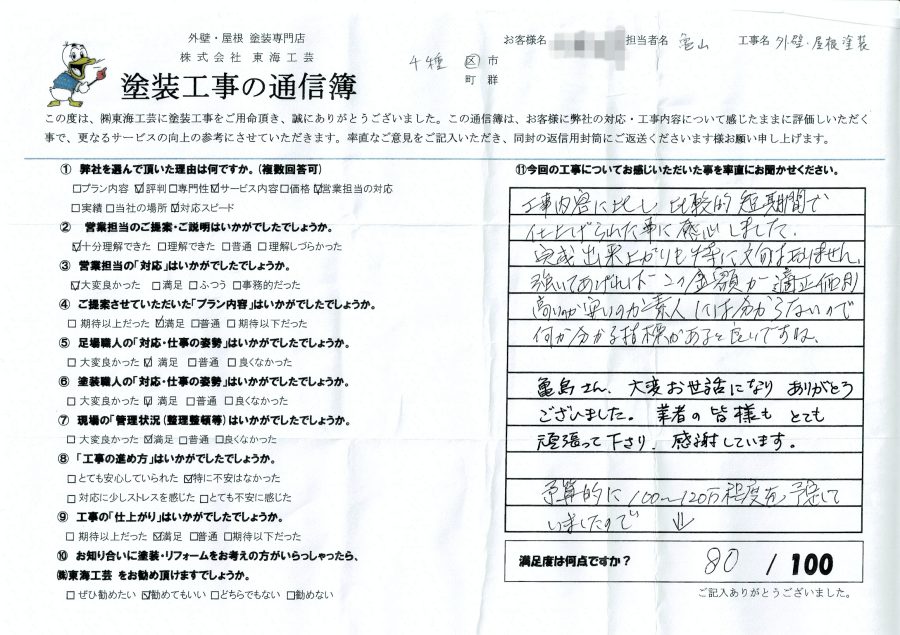 外壁・屋根 塗装専門店
株式会社 東海工芸
塗装工事の通信簿
千種 区 市
町 群
お客様名 担当者名 亀山 工事名 外壁・屋根塗装
この度は、㈱東海工芸に塗装工事をご用命頂き、誠にありがとうございました。この通信簿は、お客様に弊社の対応・工事内容について感じたままに評価しいただく
事で、更なるサービスの向上の参考にさせていただきます。率直なご意見をご記入いただき、同封の返信用封筒にご返送くださいます様お願い申し上げます。
① 弊社を選んで頂いた理由は何ですか。(複数回答可)
□プラン内容 ☑評判 □専門性 ☑サービス内容 □価格 ☑営業担当の対応
□実績 □当社の場所 ☑対応スピード
② 営業担当のご提案・ご説明はいかがでしたでしょうか。
☑十分理解できた □理解できた □普通 □理解しづらかった
③ 営業担当の「対応」はいかがでしたでしょうか。
☑大変良かった □満足 □ふつう □事務的だった
④ ご提案させていただいた「プラン内容」はいかがでしたでしょうか。
□ 期待以上だった ☑満足 □普通 □期待以下だった
⑤ 足場職人の「対応・仕事の姿勢」はいかがでしたでしょうか。
□ 大変良かった ☑ 満足 □普通 □良くなかった
⑥ 塗装職人の「対応・仕事の姿勢」はいかがでしたでしょうか。
□ 大変良かった ☑ 満足 □普通 □良くなかった
⑦ 現場の「管理状況(整理整頓等)はいかがでしたでしょうか。
□ 大変良かった ☑満足 □普通 □良くなかった
⑧ 「工事の進め方」はいかがでしたでしょうか。
□とても安心していられた ☑特に不安はなかった
□ 対応に少しストレスを感じた □とても不安に感じた
⑨ 工事の「仕上がり」はいかがでしたでしょうか。
□ 期待以上だった ☑満足 □普通 □期待以下だった
⑩ お知り合いに塗装・リフォームをお考えの方がいらっしゃったら、
㈱東海工芸 をお勧め頂けますでしょうか。
□ぜひ勧めたい ☑勧めてもいい □どちらでもない □勧めない
⑪今回の工事についてお感じいただいた事を率直にお聞かせください。
工事内容に比し 比較的 短期間で
仕上げられた事に感心しました.
完成 出来上がりも特に文句ありません.
強いてあげれば この金額が適正価格
高いのか安いのか 素人には分からないので
何か分かる指標があると良いですね.
亀島さん、大変お世話になり ありがとう
ございました。業者の皆様も とても
頑張って下さり、感謝しています。
予算的に 100〜120万程度を予定して
いましたので ↓
満足度は何点ですか? 80 / 100
ご記入ありがとうございました。